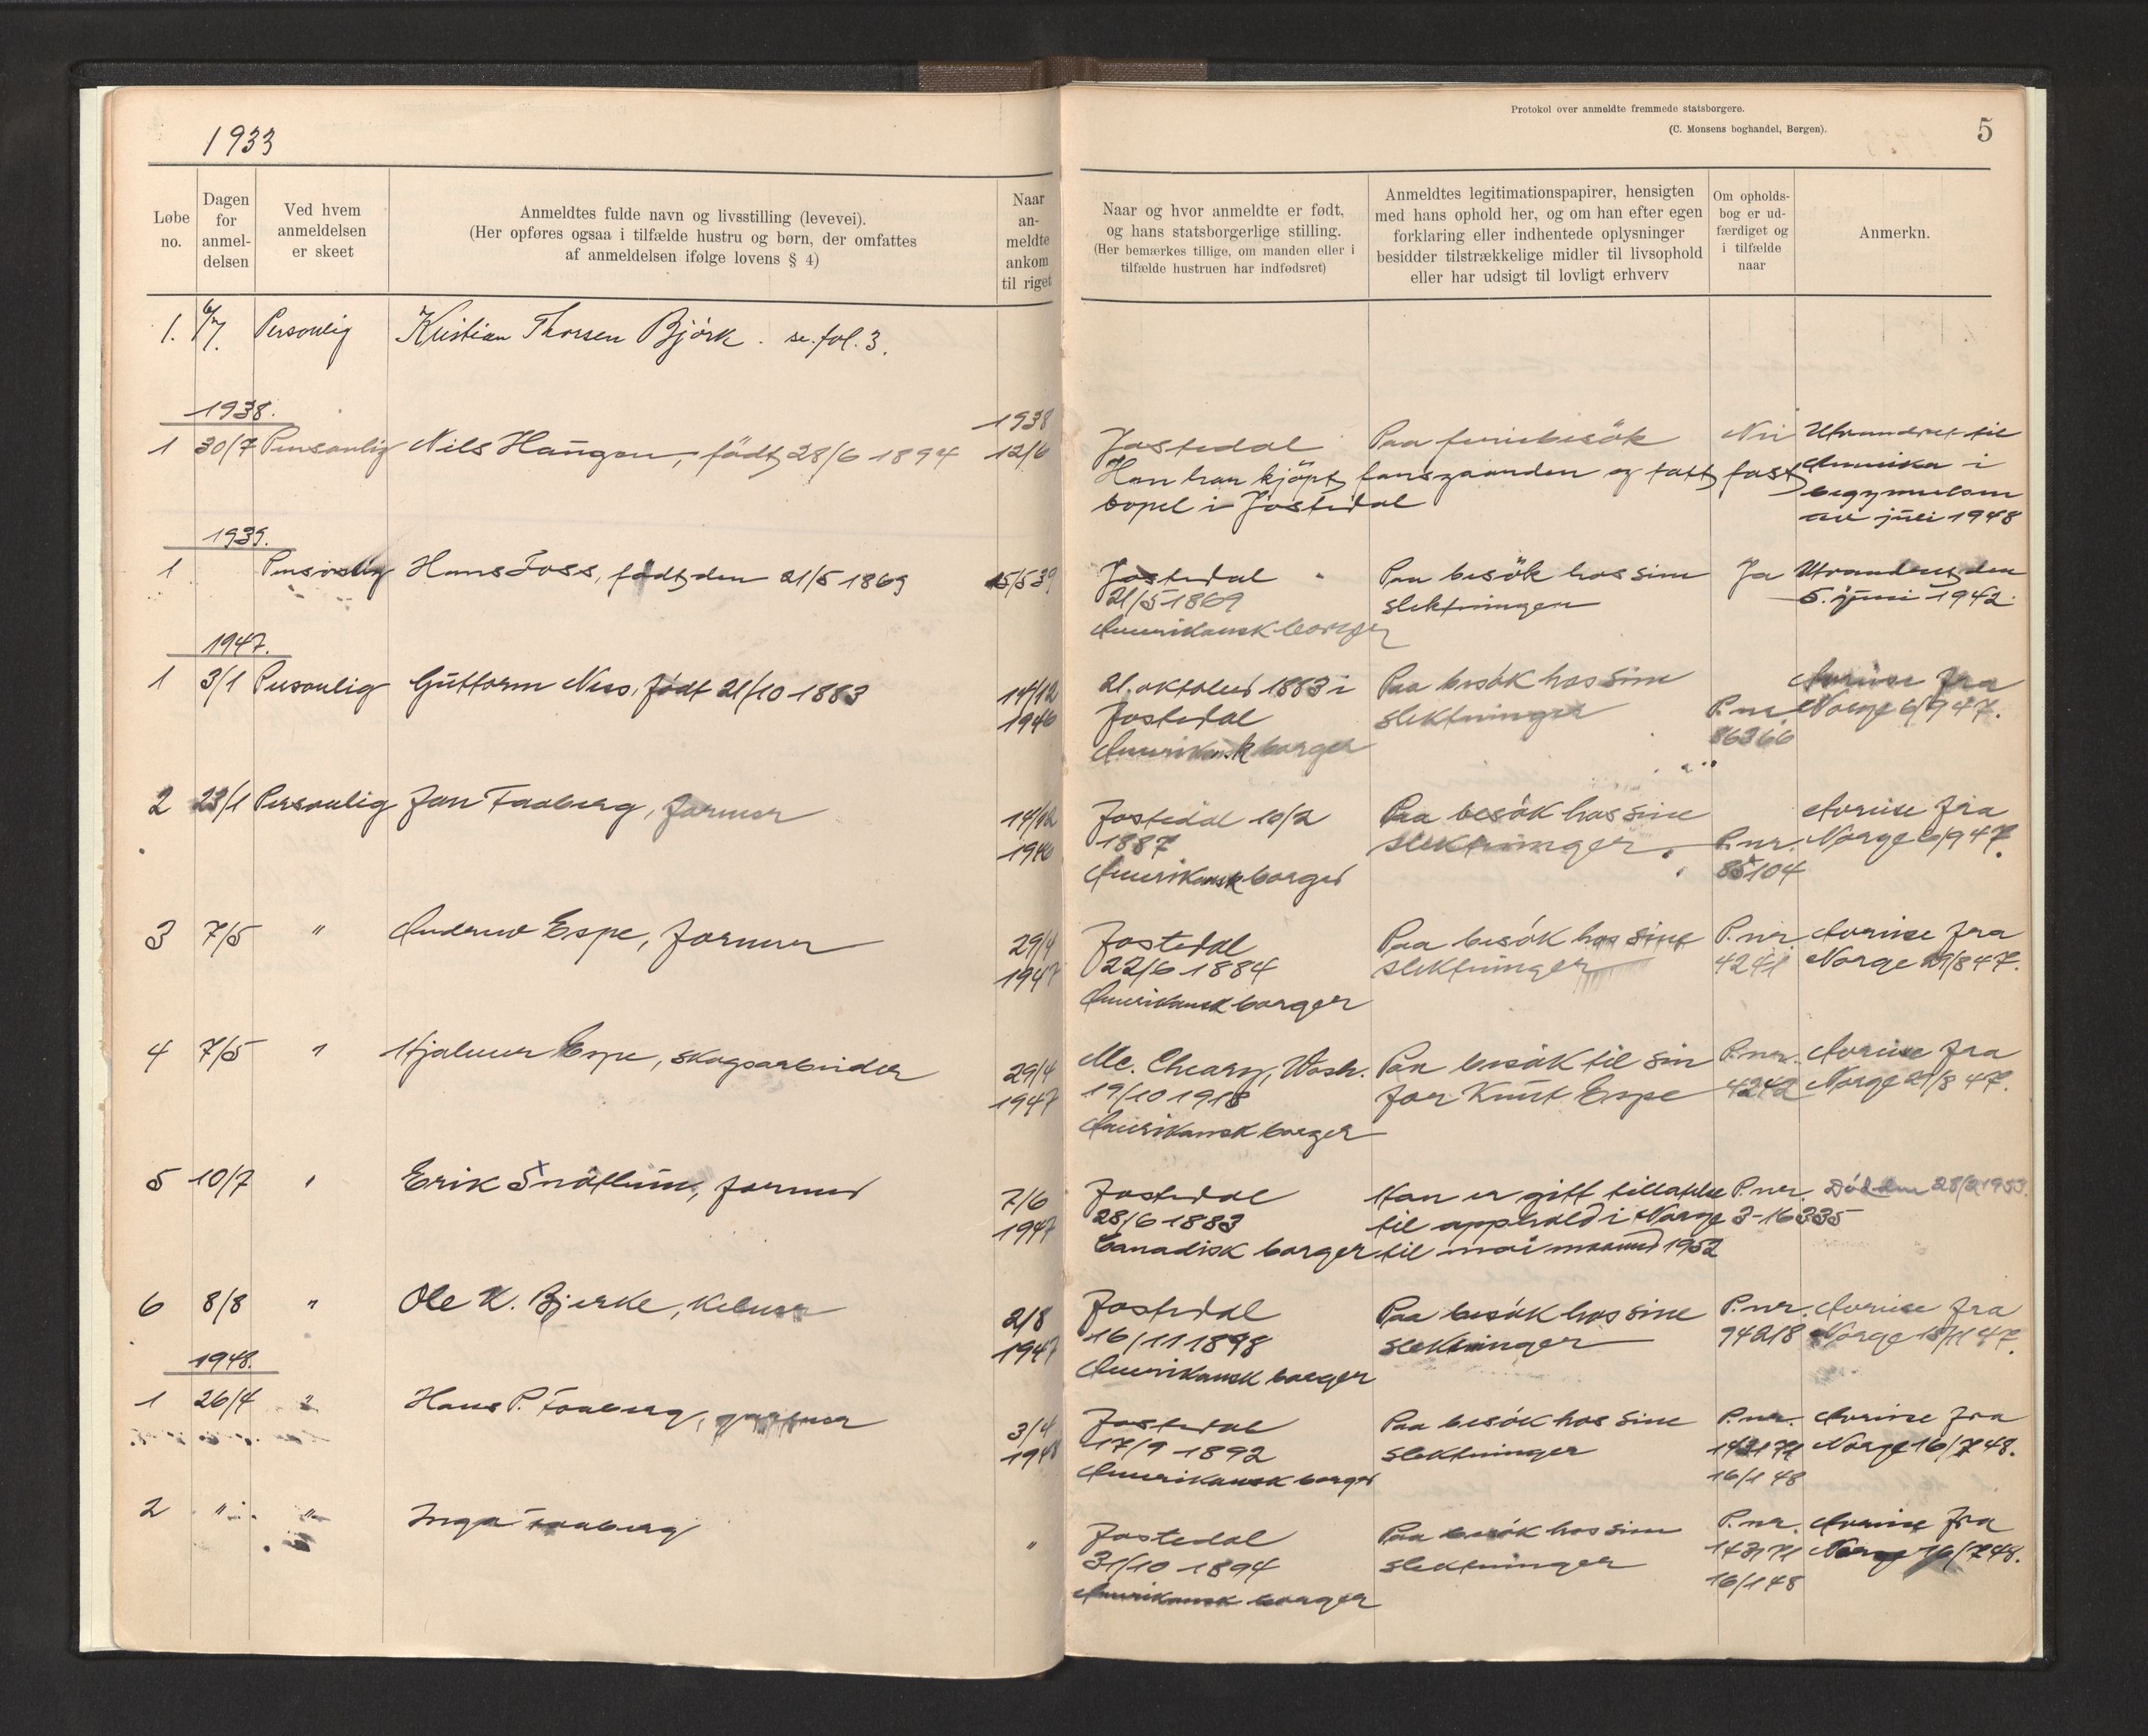 1933
Protokol over anmeldte fremmede statsborgere.
(C. Monsens boghandel, Bergen).
5
Løbe no.
Dagen for anmel- delsen
Ved hvem anmeldelsen er skeet
Anmeldtes fulde navn og livsstilling (levevei).
(Her opføres ogsaa i tilfælde hustru og børn, der omfattes
af anmeldelsen ifølge lovens § 4)
Naar an- meldte ankom til riget
Naar og hvor anmeldte er født,
og hans statsborgerlige stilling.
(Her bemærkes tillige, om manden eller i
tilfælde hustruen har indfødsret)
Anmeldtes legitimationspapirer, hensigten
med hans ophold her, og om han efter egen
forklaring eller indhentede oplysninger
besidder tilstrækkelige midler til livsophold
eller har udsigt til lovligt erhverv
Om opholds-
bog er ud-
færdiget og
i tilfælde
naar
Anmerkn.
1. Personlig Kristian Thorsen Björk. se. fol. 3.
1938.
1938
1 30/7 Personlig Nils Haugen, födt 28/6 1894 12/6
Jostedal Paa feriebesök Nei Utvandret til
Han har kjöpt farsgaarden og tatt fast Amerika i
bopel i Jostedal begynnelsen
av juli 1948
1939.
1 Personlig Hans Foss, födt den 21/5 1869 15/5 39
Jostedal Paa besök hos sine Ja Utvandret den
21/5 1869 slektninger 5. juni 1942.
Amerikansk borger
1947.
1 3/1 Personlig Guttorm Ness, födt 21/10-1883 14/12
1946
21. oktober 1883 i Paa besök hos sine Avreise fra
Jostedal slektninger P.nr. Norge 6/9 47.
Amerikansk borger 86366
2 23/1 Personlig Jon Faaberg, farmer 14/12
1946
Jostedal 10/2 Paa besök hos sine Avreise fra
1887 slektninger. P.nr. Norge 6/9 47.
Amerikansk borger 85104
3 7/5 " Andrew Espe, farmer 29/4
1947
Jostedal Paa besök hos sine P.nr. Avreise fra
22/6 1884 slektninger 4241 Norge 29/8 47.
Amerikansk borger
4 7/5 " Hjalmer Espe, skogsarbeider 29/4
1947
Mc. Cleary, Wash. Paa besök til sin P.nr. Avreise fra
19/10 1918 far Knut Espe 4242 Norge 29/8 47.
Amerikansk borger
5 10/7 " Erik Snötun, farmer 7/6
1947
Jostedal Han er gitt tillatelse P.nr. Död den 28/2 1953.
28/6 1883 til opphold i Norge 3-16335
Canadisk borger til mai maaned 1952
6 8/8 " Ole K. Bjerke, Kelner 2/8
1947
Jostedal Paa besök hos sine P.nr. Avreise fra
16/11 1898 slektninger 94218 Norge 47.
Amerikansk borger
1948.
1 26/4 " Hans P. Faaberg, 3/4
1948
Jostedal Paa besök hos sine P.nr. Avreise fra
17/9 1892 slektninger Norge 16/7 48.
Amerikansk borger 16/1 48
2 " " Inga Faaberg "
Jostedal Paa besök hos sine P.nr. Avreise fra
31/10 1894 slektninger Norge 16/7 48.
Amerikansk borger 16/1 48